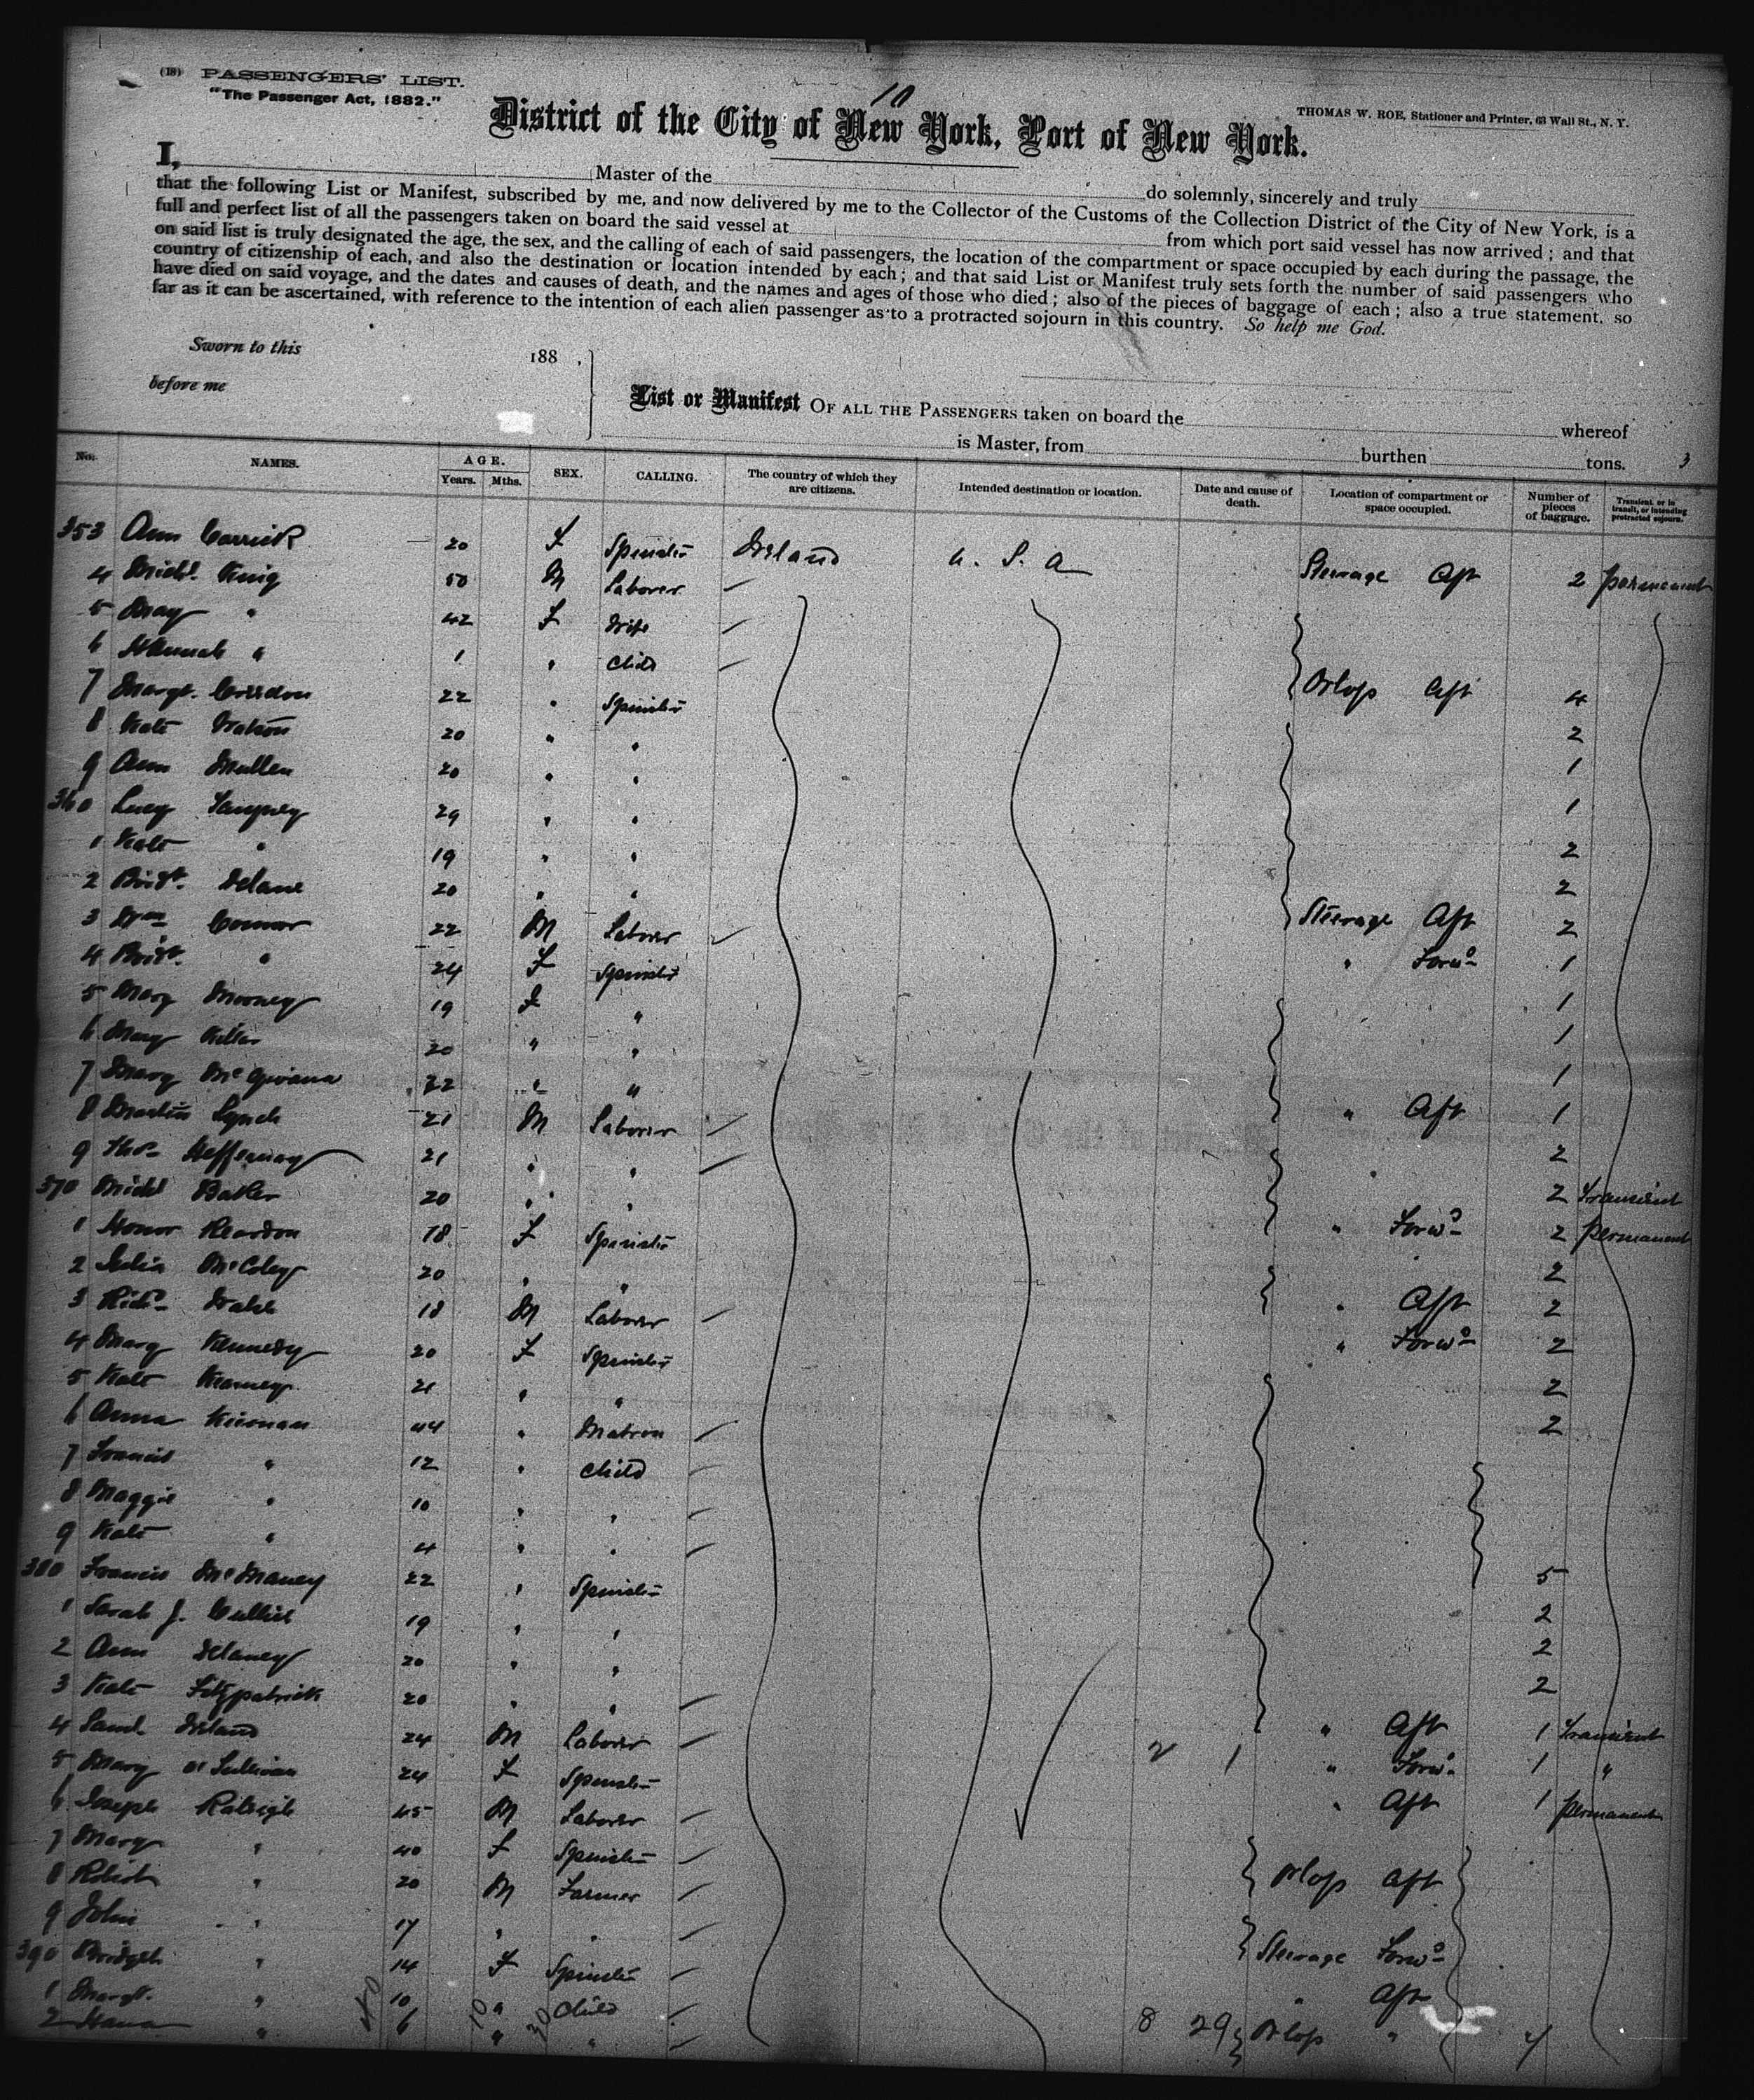 (18) PASSENGERS' LIST.
"The Passenger Act, 1882."
10
THOMAS W. ROE, Stationer and Printer, 63 Wall St., N. Y.
District of the City of New York, Port of New York.
I, Master of the do solemnly, sincerely and truly
that the following List or Manifest, subscribed by me, and now delivered by me to the Collector of the Customs of the Collection District of the City of New York, is a
full and perfect list of all the passengers taken on board the said vessel at from which port said vessel has now arrived; and that
on said list is truly designated the age, the sex, and the calling of each of said passengers, the location of the compartment or space occupied by each during the passage, the
country of citizenship of each, and also the destination or location intended by each; and that said List or Manifest truly sets forth the number of said passengers who
have died on said voyage, and the dates and causes of death, and the names and ages of those who died; also of the pieces of baggage of each; also a true statement, so
far as it can be ascertained, with reference to the intention of each alien passenger as to a protracted sojourn in this country. So help me God.
Sworn to this 188 .
before me
List or Manifest OF ALL THE PASSENGERS taken on board the whereof
is Master, from burthen tons. 3
No. NAMES. AGE. Years. Mths. SEX. CALLING. The country of which they are citizens. Intended destination or location. Date and cause of death. Location of compartment or space occupied. Number of pieces of baggage. Transient, or in transit, or intending protracted sojourn.
353 Ann Carrick 20 F Spinster Ireland U. S. A Steerage Aft 2 permanent
4 Michl. King 50 M Laborer
5 Mary " 42 F Wife
6 Hannah " 1 " Child
7 Margt. 22 " Spinster Orlop Aft 4
8 Kate Watson 20 " " 2
9 Ann Mullen 20 " " 1
360 Lucy 29 " " 1
1 Kate " 19 " " 2
2 Bridt. Delane 20 " " 2
3 Wm Connor 22 M Laborer Steerage Aft 2
4 Bridt. " 24 F Spinster " Forwd 1
5 Mary Mooney 19 F " 1
6 Mary 20 " " 1
7 Mary 22 " " 1
8 Martin Lynch 21 M Laborer " Aft 1
9 Thos Heffernay 21 " " 2
370 Michl 20 " " 2 Transient
1 Honor Reardon 18 F Spinster " Forwd 2 permanent
2 Julia McColey 20 " " 2
3 Richd 18 M Laborer " Aft 2
4 Mary Kennedy 20 F Spinster " Forwd 2
5 Kate Kearney 21 " " 2
6 Anna Kiernan 44 " Matron 2
7 Francis " 12 " Child
8 Maggie " 10 " "
9 Kate " 4 " "
380 Francis McManey 22 " Spinster 5
1 Sarah J. 19 " " 2
2 Ann Delaney 20 " " 2
3 Kate Fitzpatrick 20 " " 2
4 Saml Ireland 24 M Laborer " Aft 1 Transient
5 Mary O'Sullivan 24 F Spinster 2 1 " Forwd 1 "
6 Joseph Raleigh 45 M Laborer " Aft 1 permanent
7 Mary " 40 F Spinster
8 Robert " 20 M Farmer Orlop Aft
9 John " 17 " "
390 Bridget " 14 F Spinster Steerage Forwd
1 Margt. " 10 " Child " Aft
2 Hana " 6 " " 8 29 Orlop "
10 30